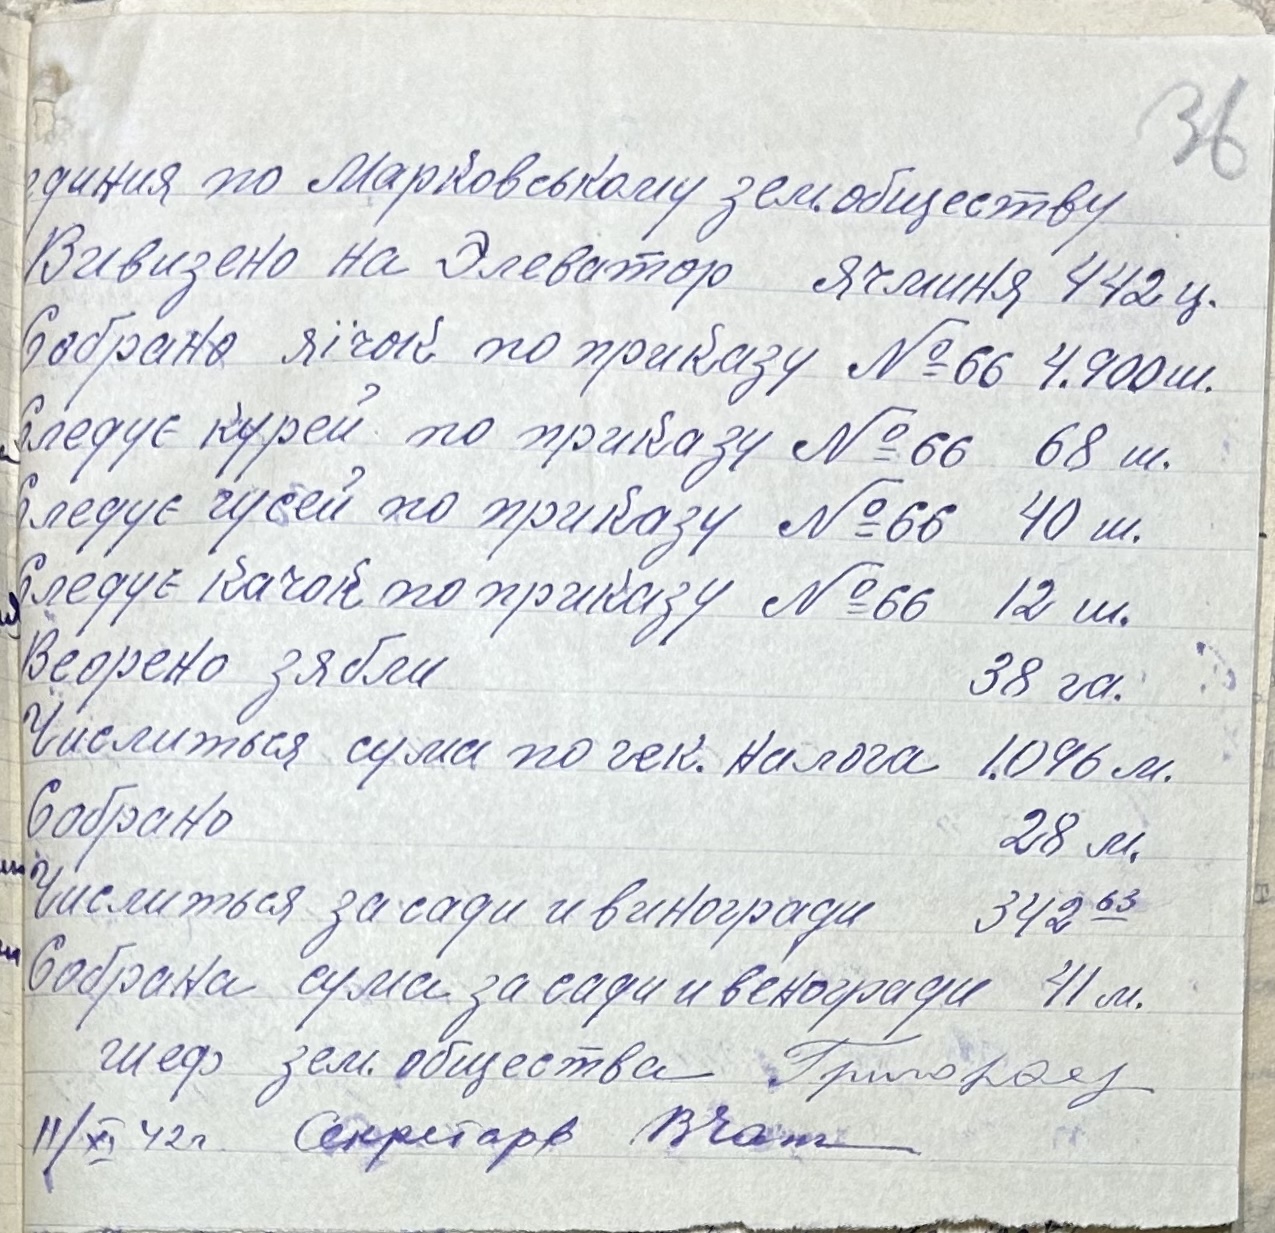 36
единия по Марковському зем. обществу
Вивизено на Элеватор ячминя 442 ц.
Собрано яічок по приказу № 66 4.900 ш.
Следує курей по приказу № 66 68 ш.
Следує гусей по приказу № 66 40 ш.
Следує качок по приказу № 66 12 ш.
Веорено зябли 38 га.
Числиться сума по гек. налога 1.096 м.
Собрано 28 м.
Числиться за сади и винагради 342 63
Собрана сума за сади и венагради 41 м.
шеф зем. общества
11/XI 42 г. Секретарь